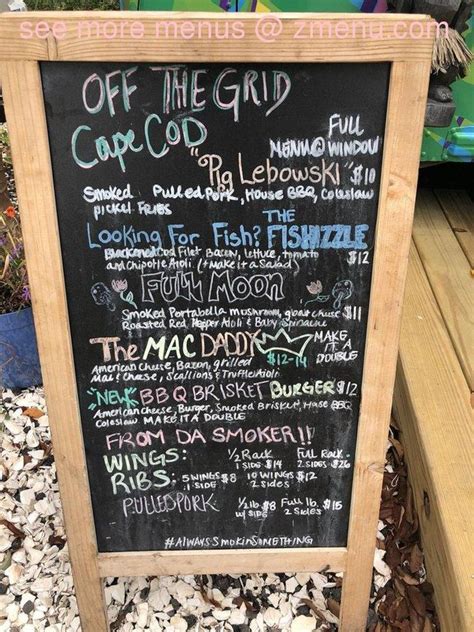 see more menus @ zmenu.com
OFF THE GRID
Cape Cod
Full
Menu @ window
"Pig Lebowski" $10
Smoked Pulled Pork, House BBQ, Coleslaw
pickel Fries
Looking For Fish? THE FISHIZZLE
Blackened Cod Filet Bacon, lettuce, tomato
and Chipotle Aioli (+ Make it a Salad) $12
Full Moon
Smoked Portabella mushroom, goat cheese $11
Roasted Red Pepper Aioli & Baby Spinach
The MAC DADDY $12-14 MAKE IT A DOUBLE
American Cheese, Bacon, grilled
Mac & Cheese, Scallions & Truffle Aioli
"NEW" BBQ BRISKET BURGER $12
American Cheese, Burger, Smoked Brisket, House BBQ
Coleslaw MAKE IT A DOUBLE
FROM DA SMOKER!!
WINGS: 1/2 Rack Full Rack
1 SIDE $14 2 SIDES $26
RIBS: 5 WINGS $8 10 WINGS $12
1 SIDE 2 SIDES
PULLED PORK 1/2 lb $8 Full lb. $15
w/ SIDE 2 Sides
#ALWAYSSMOKINSOMETHING